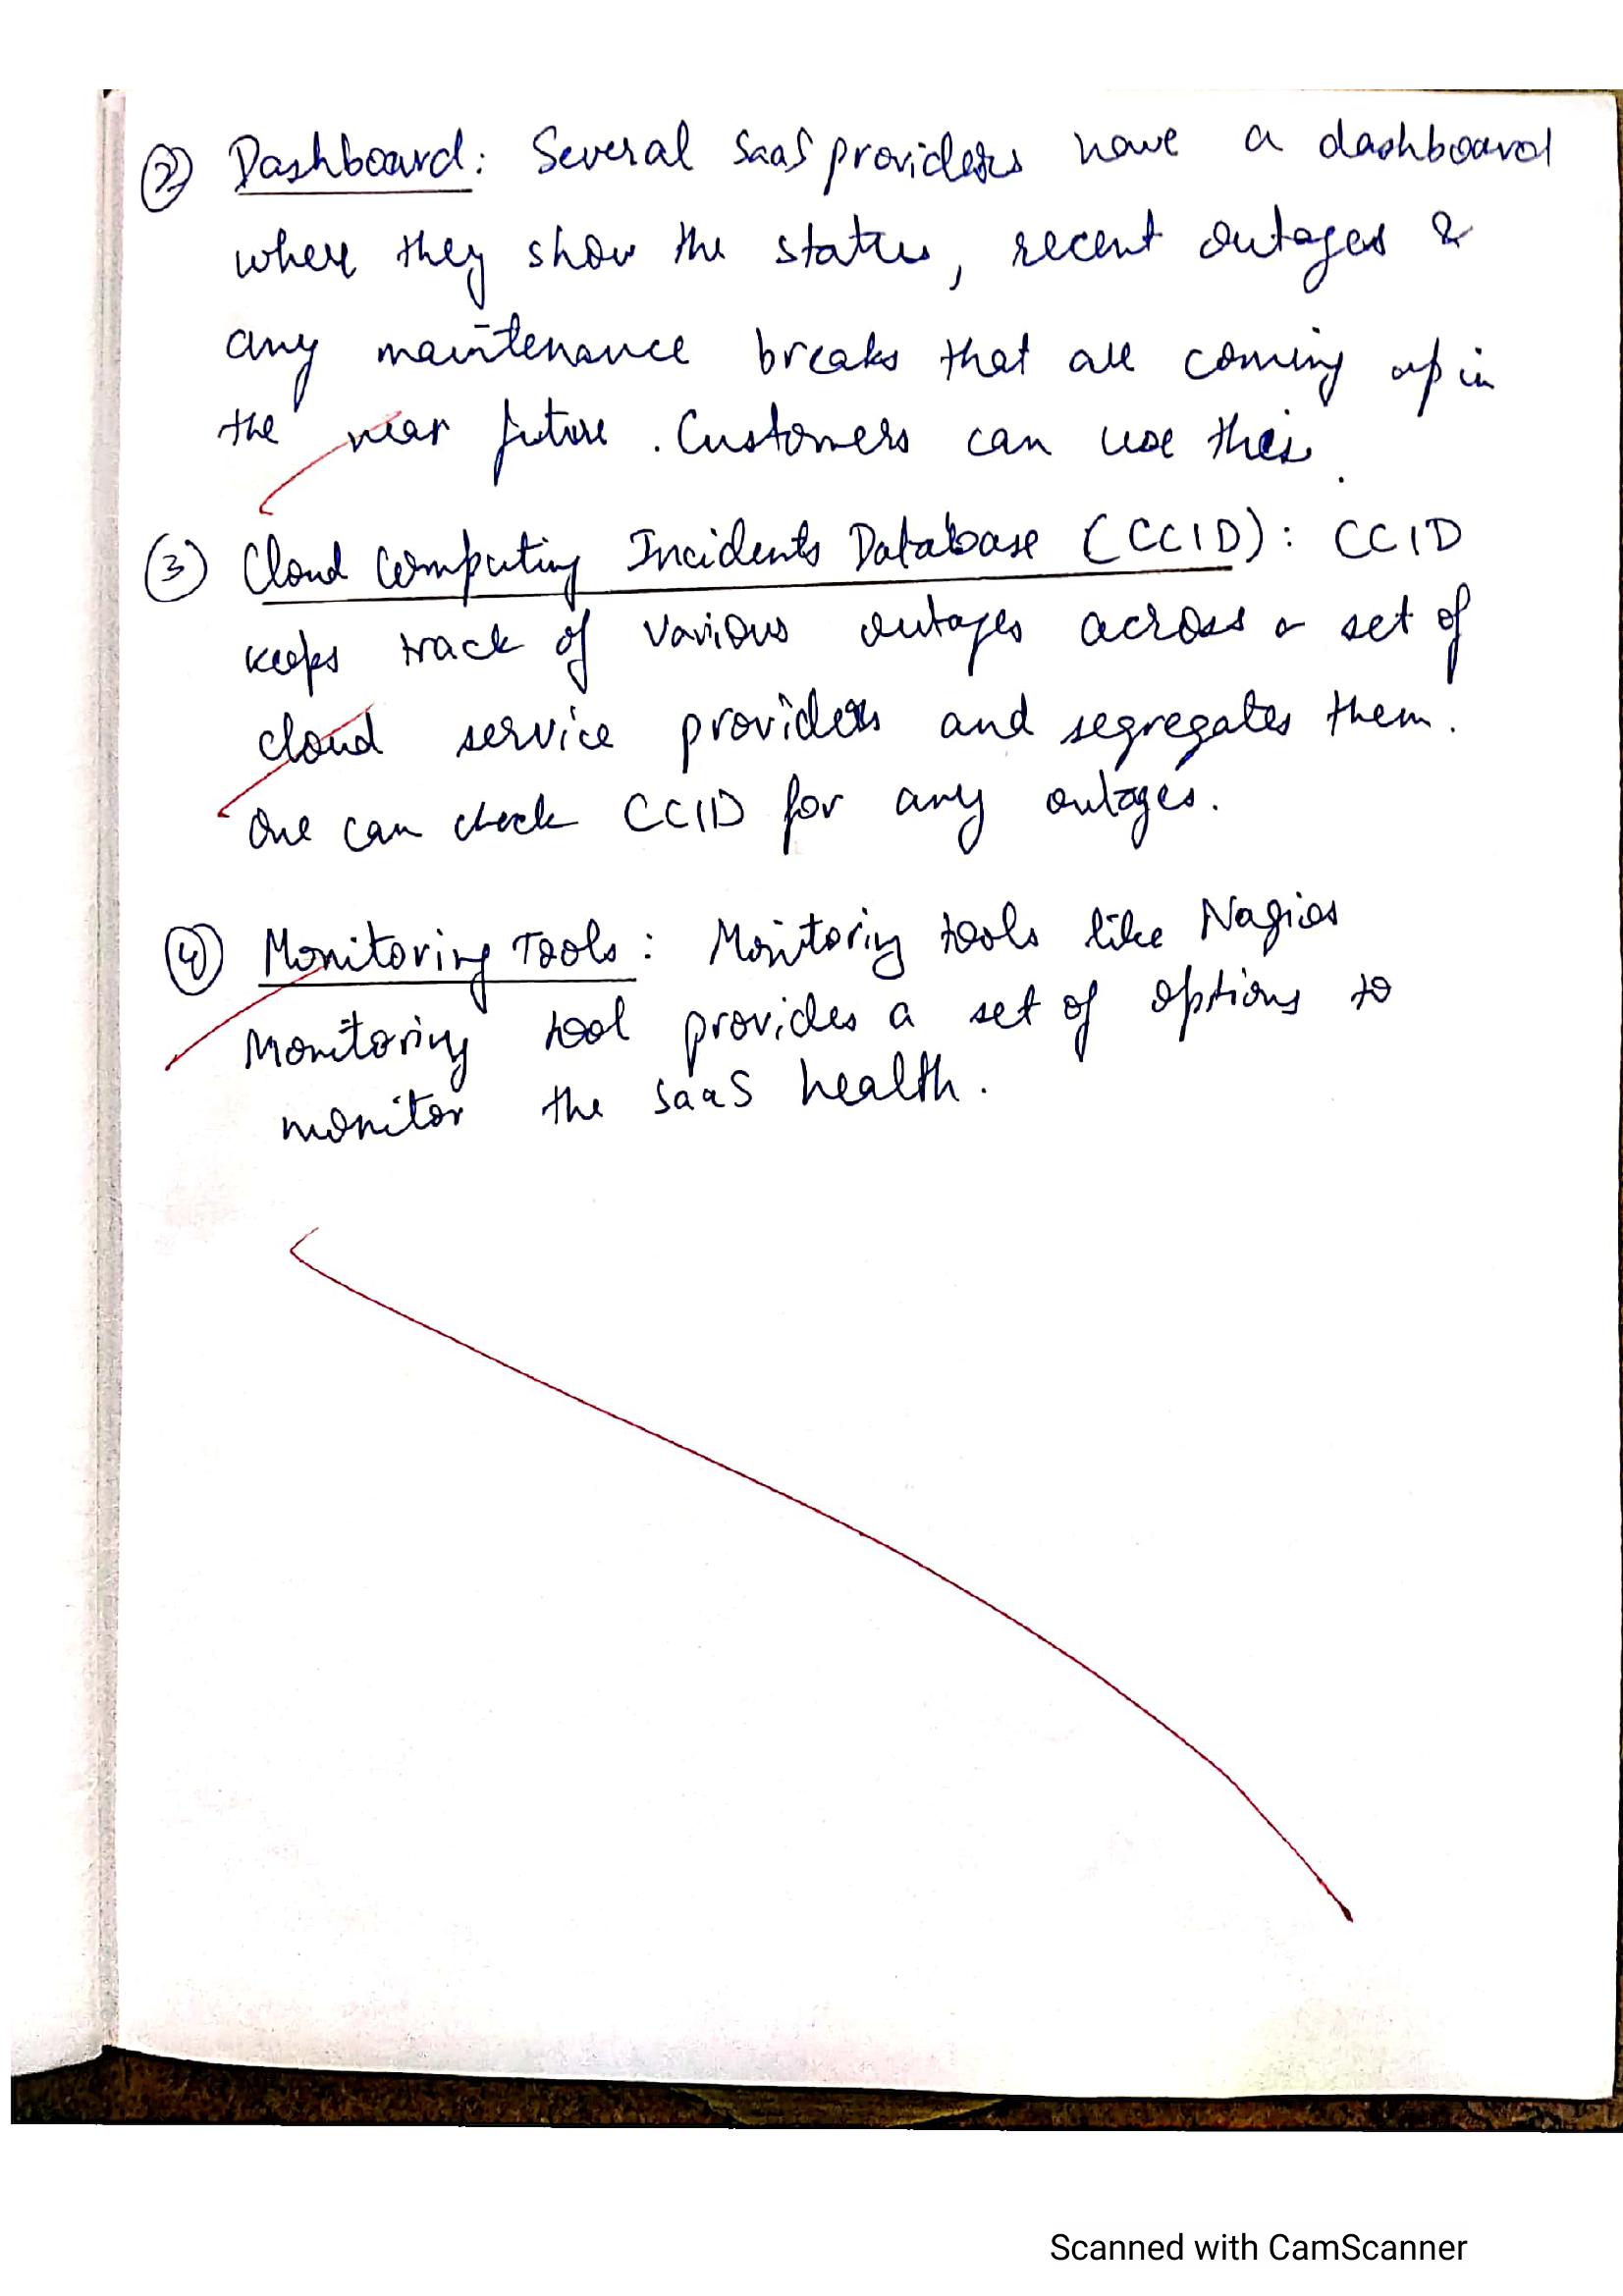 ② Dashboard: Several SaaS providers have a dashboard
where they show the status, recent outages &
any maintenance breaks that are coming up in
the near future. Customers can use this.
③ Cloud Computing Incidents Database (CCID): CCID
keeps track of various outages across a set of
cloud service providers and segregates them.
One can check CCID for any outages.
④ Monitoring Tools: Monitoring tools like Nagios
Monitoring tool provides a set of options to
monitor the SaaS health.
Scanned with CamScanner